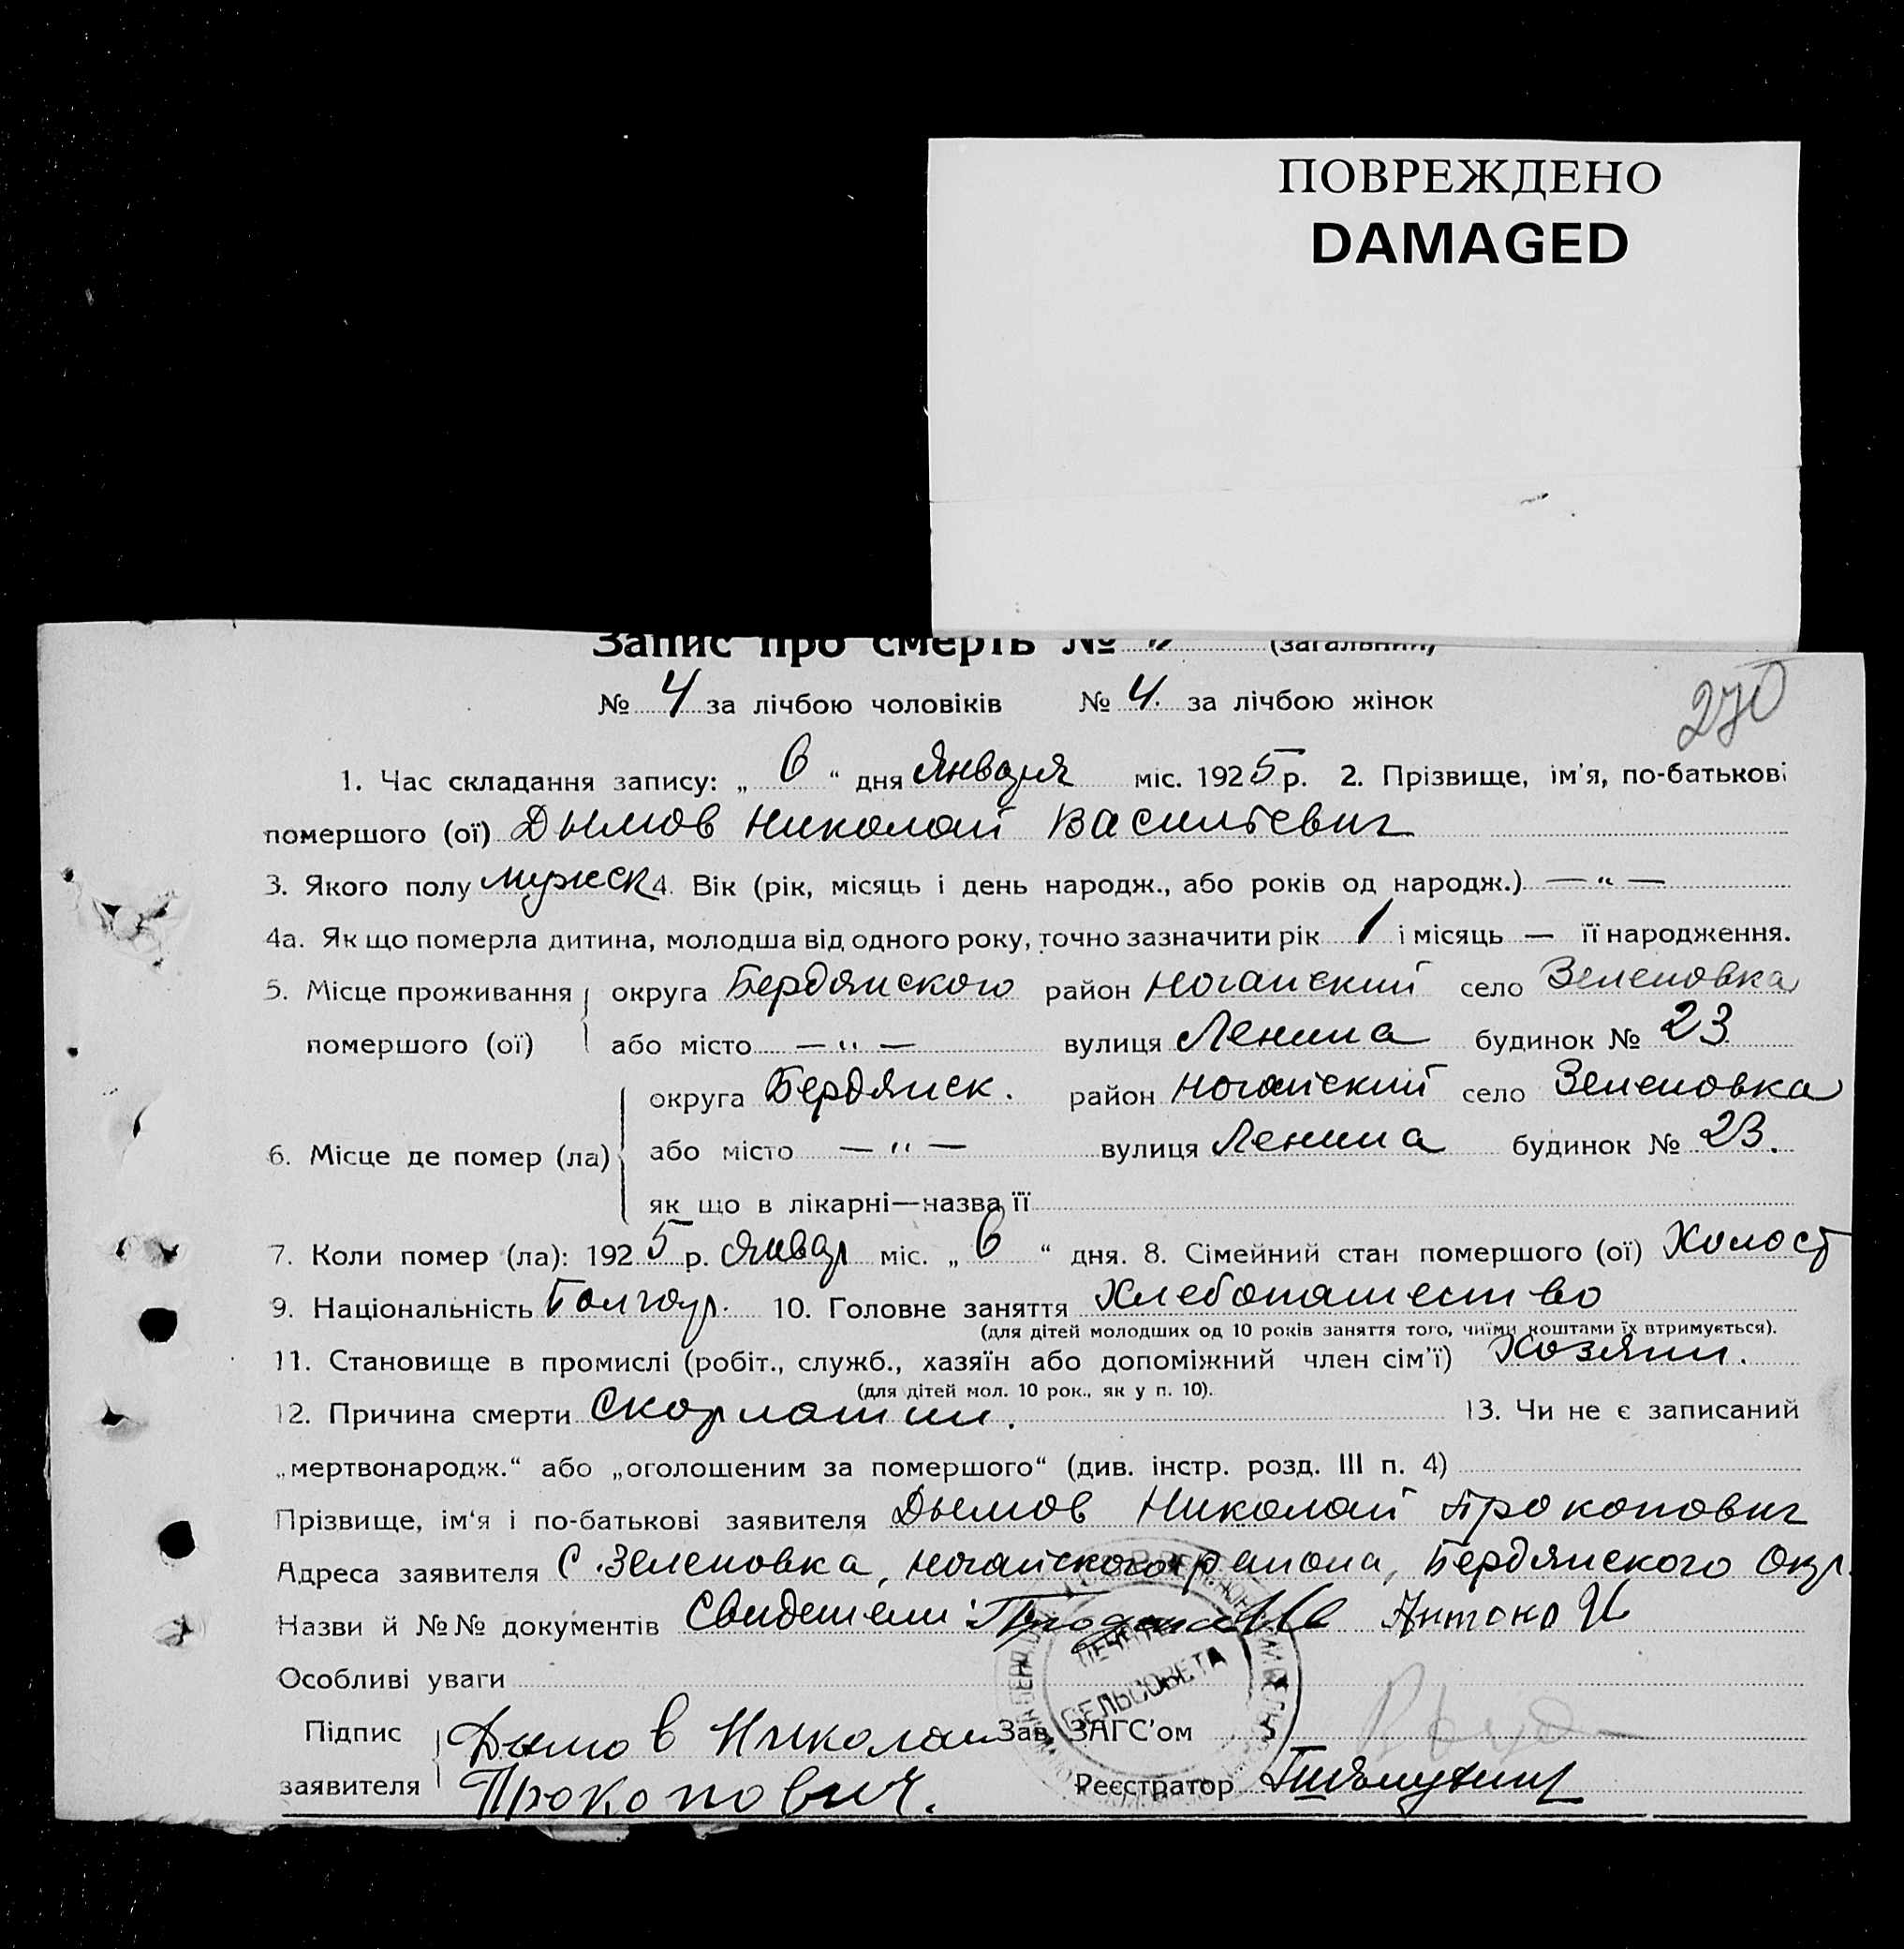 ПОВРЕЖДЕНО
DAMAGED
Запис про смерть № (загальний)
№ 4 за лічбою чоловіків № 4. за лічбою жінок
270
1. Час складання запису: „ 6 “ дня Января міс. 1925 р. 2. Прізвище, ім'я, по-батькові
помершого (ої) Дымов Николай Васильевич
3. Якого полу мужск 4. Вік (рік, місяць і день народж., або років од народж.) — „ —
4а. Як що померла дитина, молодша від одного року, точно зазначити рік 1 і місяць — її народження.
5. Місце проживання округа Бердянского район Ногайский село Зеленовка
помершого (ої) або місто — „ — вулиця Ленина будинок № 23
округа Бердянск. район Ногайский село Зеленовка
6. Місце де помер (ла) або місто — „ — вулиця Ленина будинок № 23.
як що в лікарні—назва її
7. Коли помер (ла): 1925 р. Январ міс. „ 6 “ дня. 8. Сімейний стан помершого (ої) Холост
9. Національність Болгар. 10. Головне заняття Хлебопашество
(для дітей молодших од 10 років заняття того, чиїми коштами їх втримується).
11. Становище в промислі (робіт., служб., хазяїн або допоміжний член сім'ї) Хозяин.
(для дітей мол. 10 рок., як у п. 10).
12. Причина смерти Скарлатин. 13. Чи не є записаний
„мертвонародж.“ або „оголошеним за помершого“ (див. інстр. розд. III п. 4)
Прізвище, ім'я і по-батькові заявителя Дымов Николай Прокопович
Адреса заявителя С. Зеленовка, Ногайского района, Бердянского Окр.
Назви й №№ документів Свидетели:
Особливі уваги
ПЕЧАТЬ
СЕЛЬСОВЕТА
Підпис Дымов Николаи Зав. ЗАГС'ом
заявителя Прокопович. Реєстратор